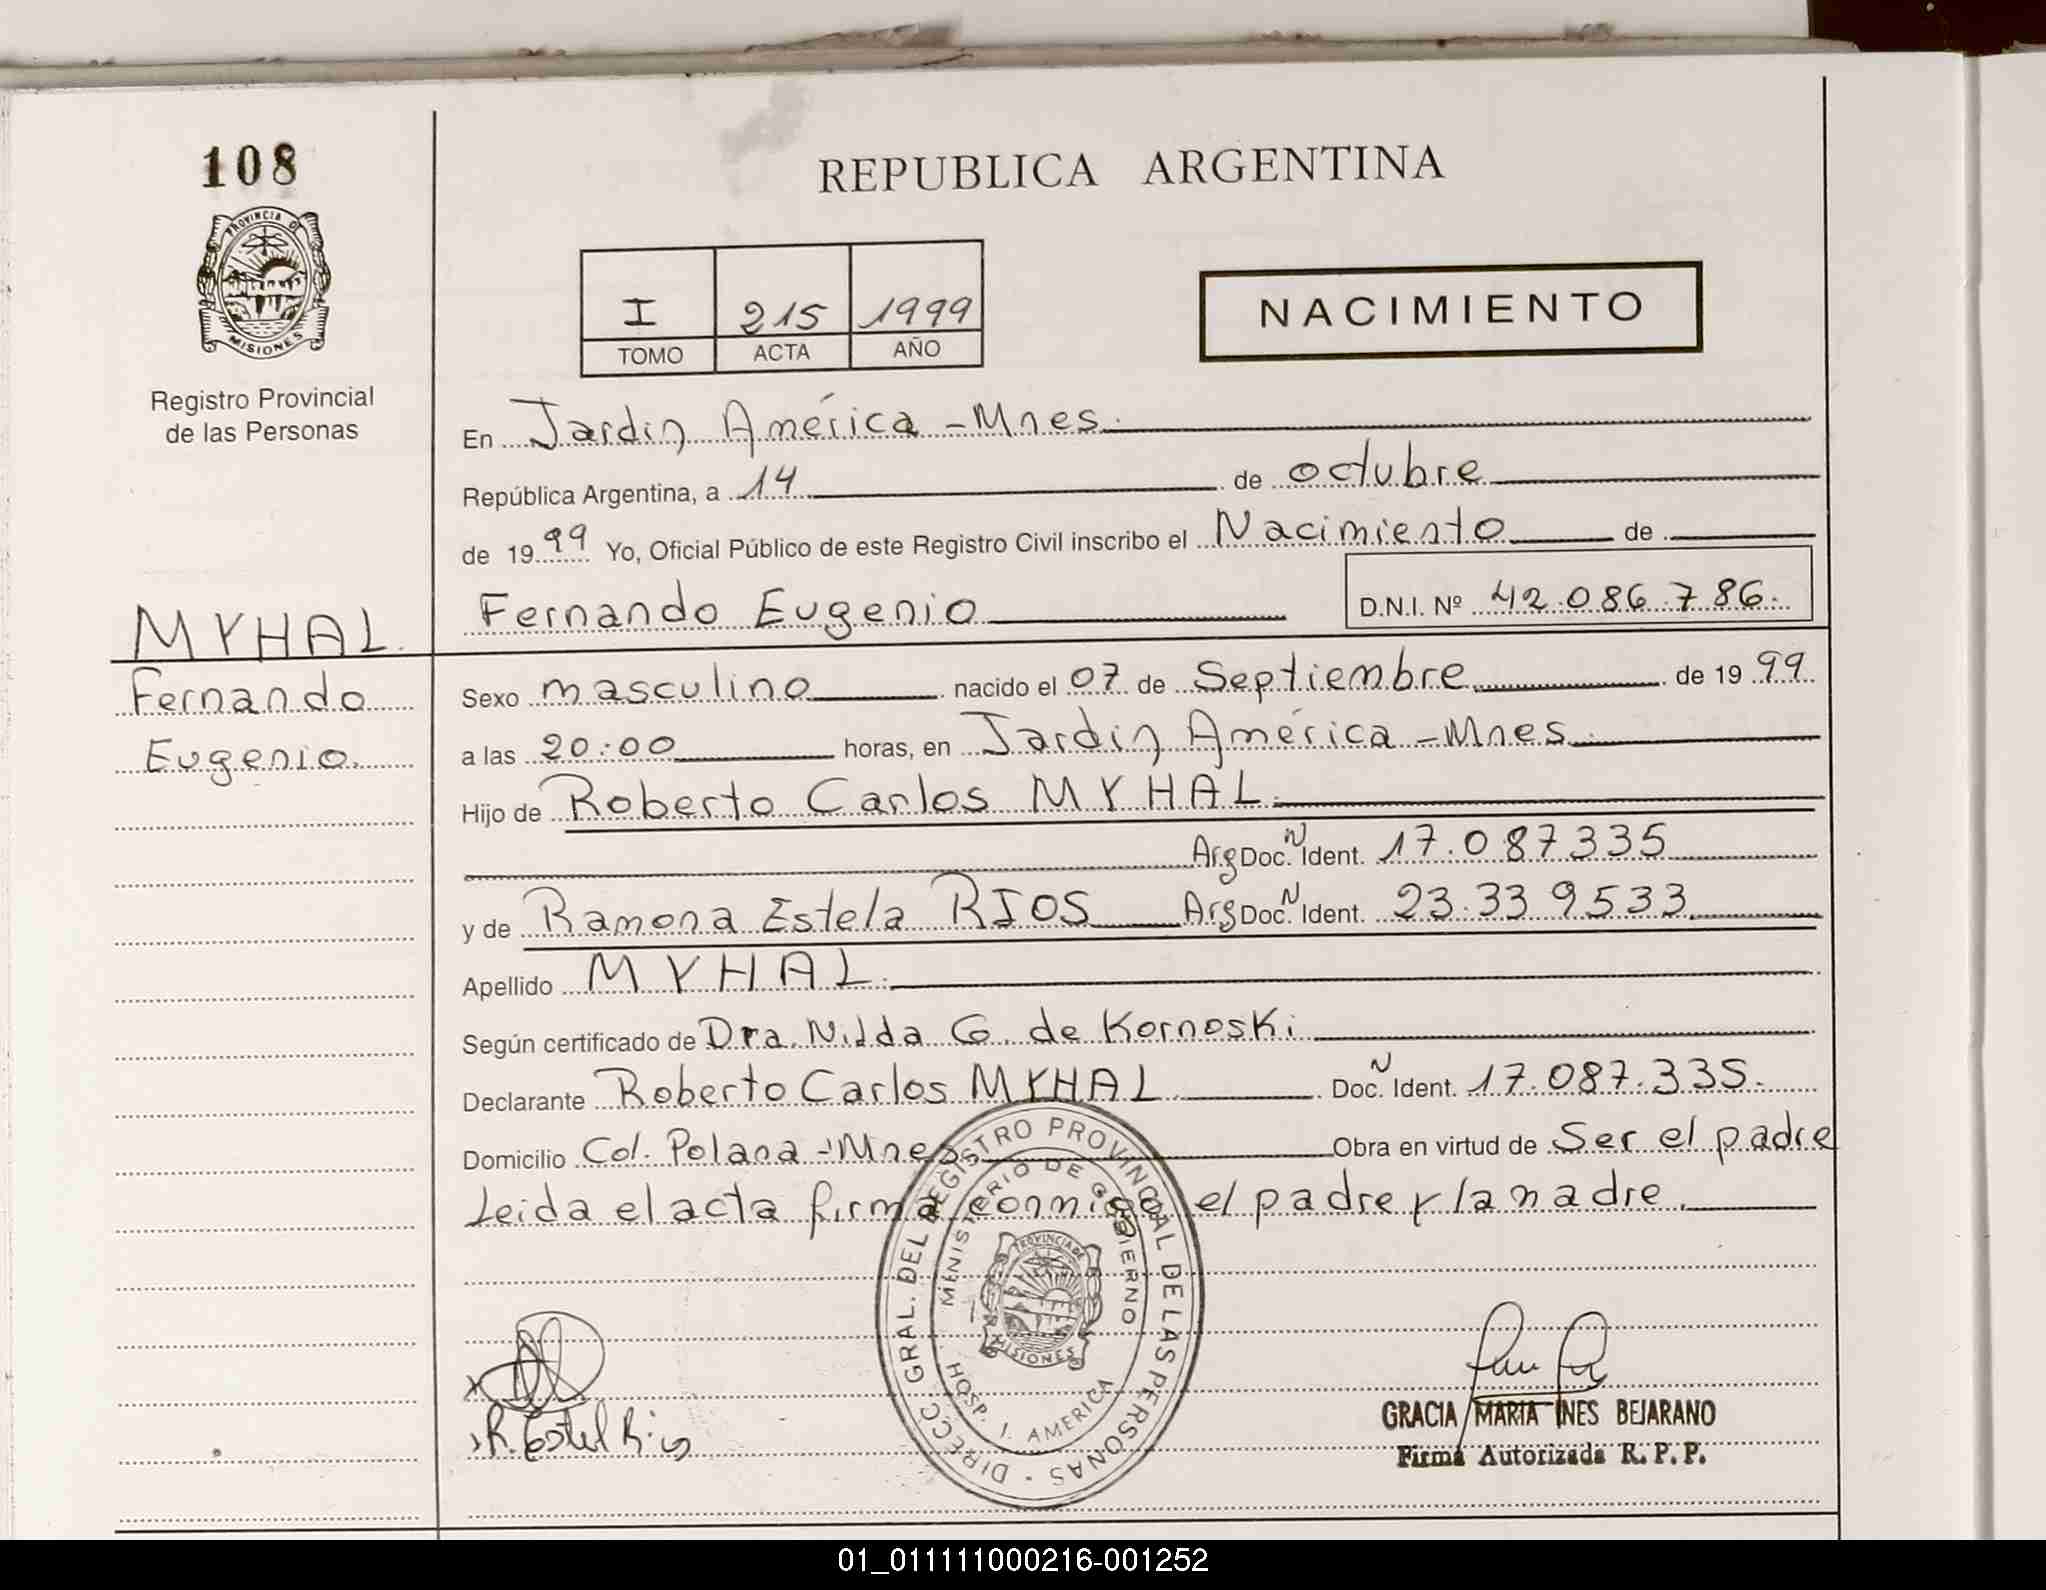 108
REPUBLICA ARGENTINA
PROVINCIA D
MISIONES
Registro Provincial
de las Personas
I 215 1999
TOMO ACTA AÑO
NACIMIENTO
En Jardin América - Mnes.
República Argentina, a 14 de octubre
de 1999 Yo, Oficial Público de este Registro Civil inscribo el Nacimiento de
Fernando Eugenio D.N.I. Nº 42.086.786.
MYHAL
Fernando
Eugenio.
Sexo masculino nacido el 07 de Septiembre de 1999
a las 20:00 horas, en Jardin América - Mnes.
Hijo de Roberto Carlos MYHAL.
Arg Doc. N Ident. 17.087335
y de Ramona Estela RIOS Arg Doc. N Ident. 23.339533
Apellido MYHAL.
Según certificado de Dra. Nilda G. de Kornoski
Declarante Roberto Carlos MYHAL Doc. N Ident. 17.087.335.
Domicilio Col. Polana - Mnes Obra en virtud de Ser el padre
Leida el acta firma conmigo el padre y la madre.
DIRECC GRAL. DEL REGISTRO PROVINCIAL DE LAS PERSONAS
MENISTERIO DE GOBIERNO
HOSP. I. AMERICA
PROVINCIA DE
MISIONES
R. Estel Rios
GRACIA MARIA INES BEJARANO
Firma Autorizada R. P. P.
01_011111000216-001252